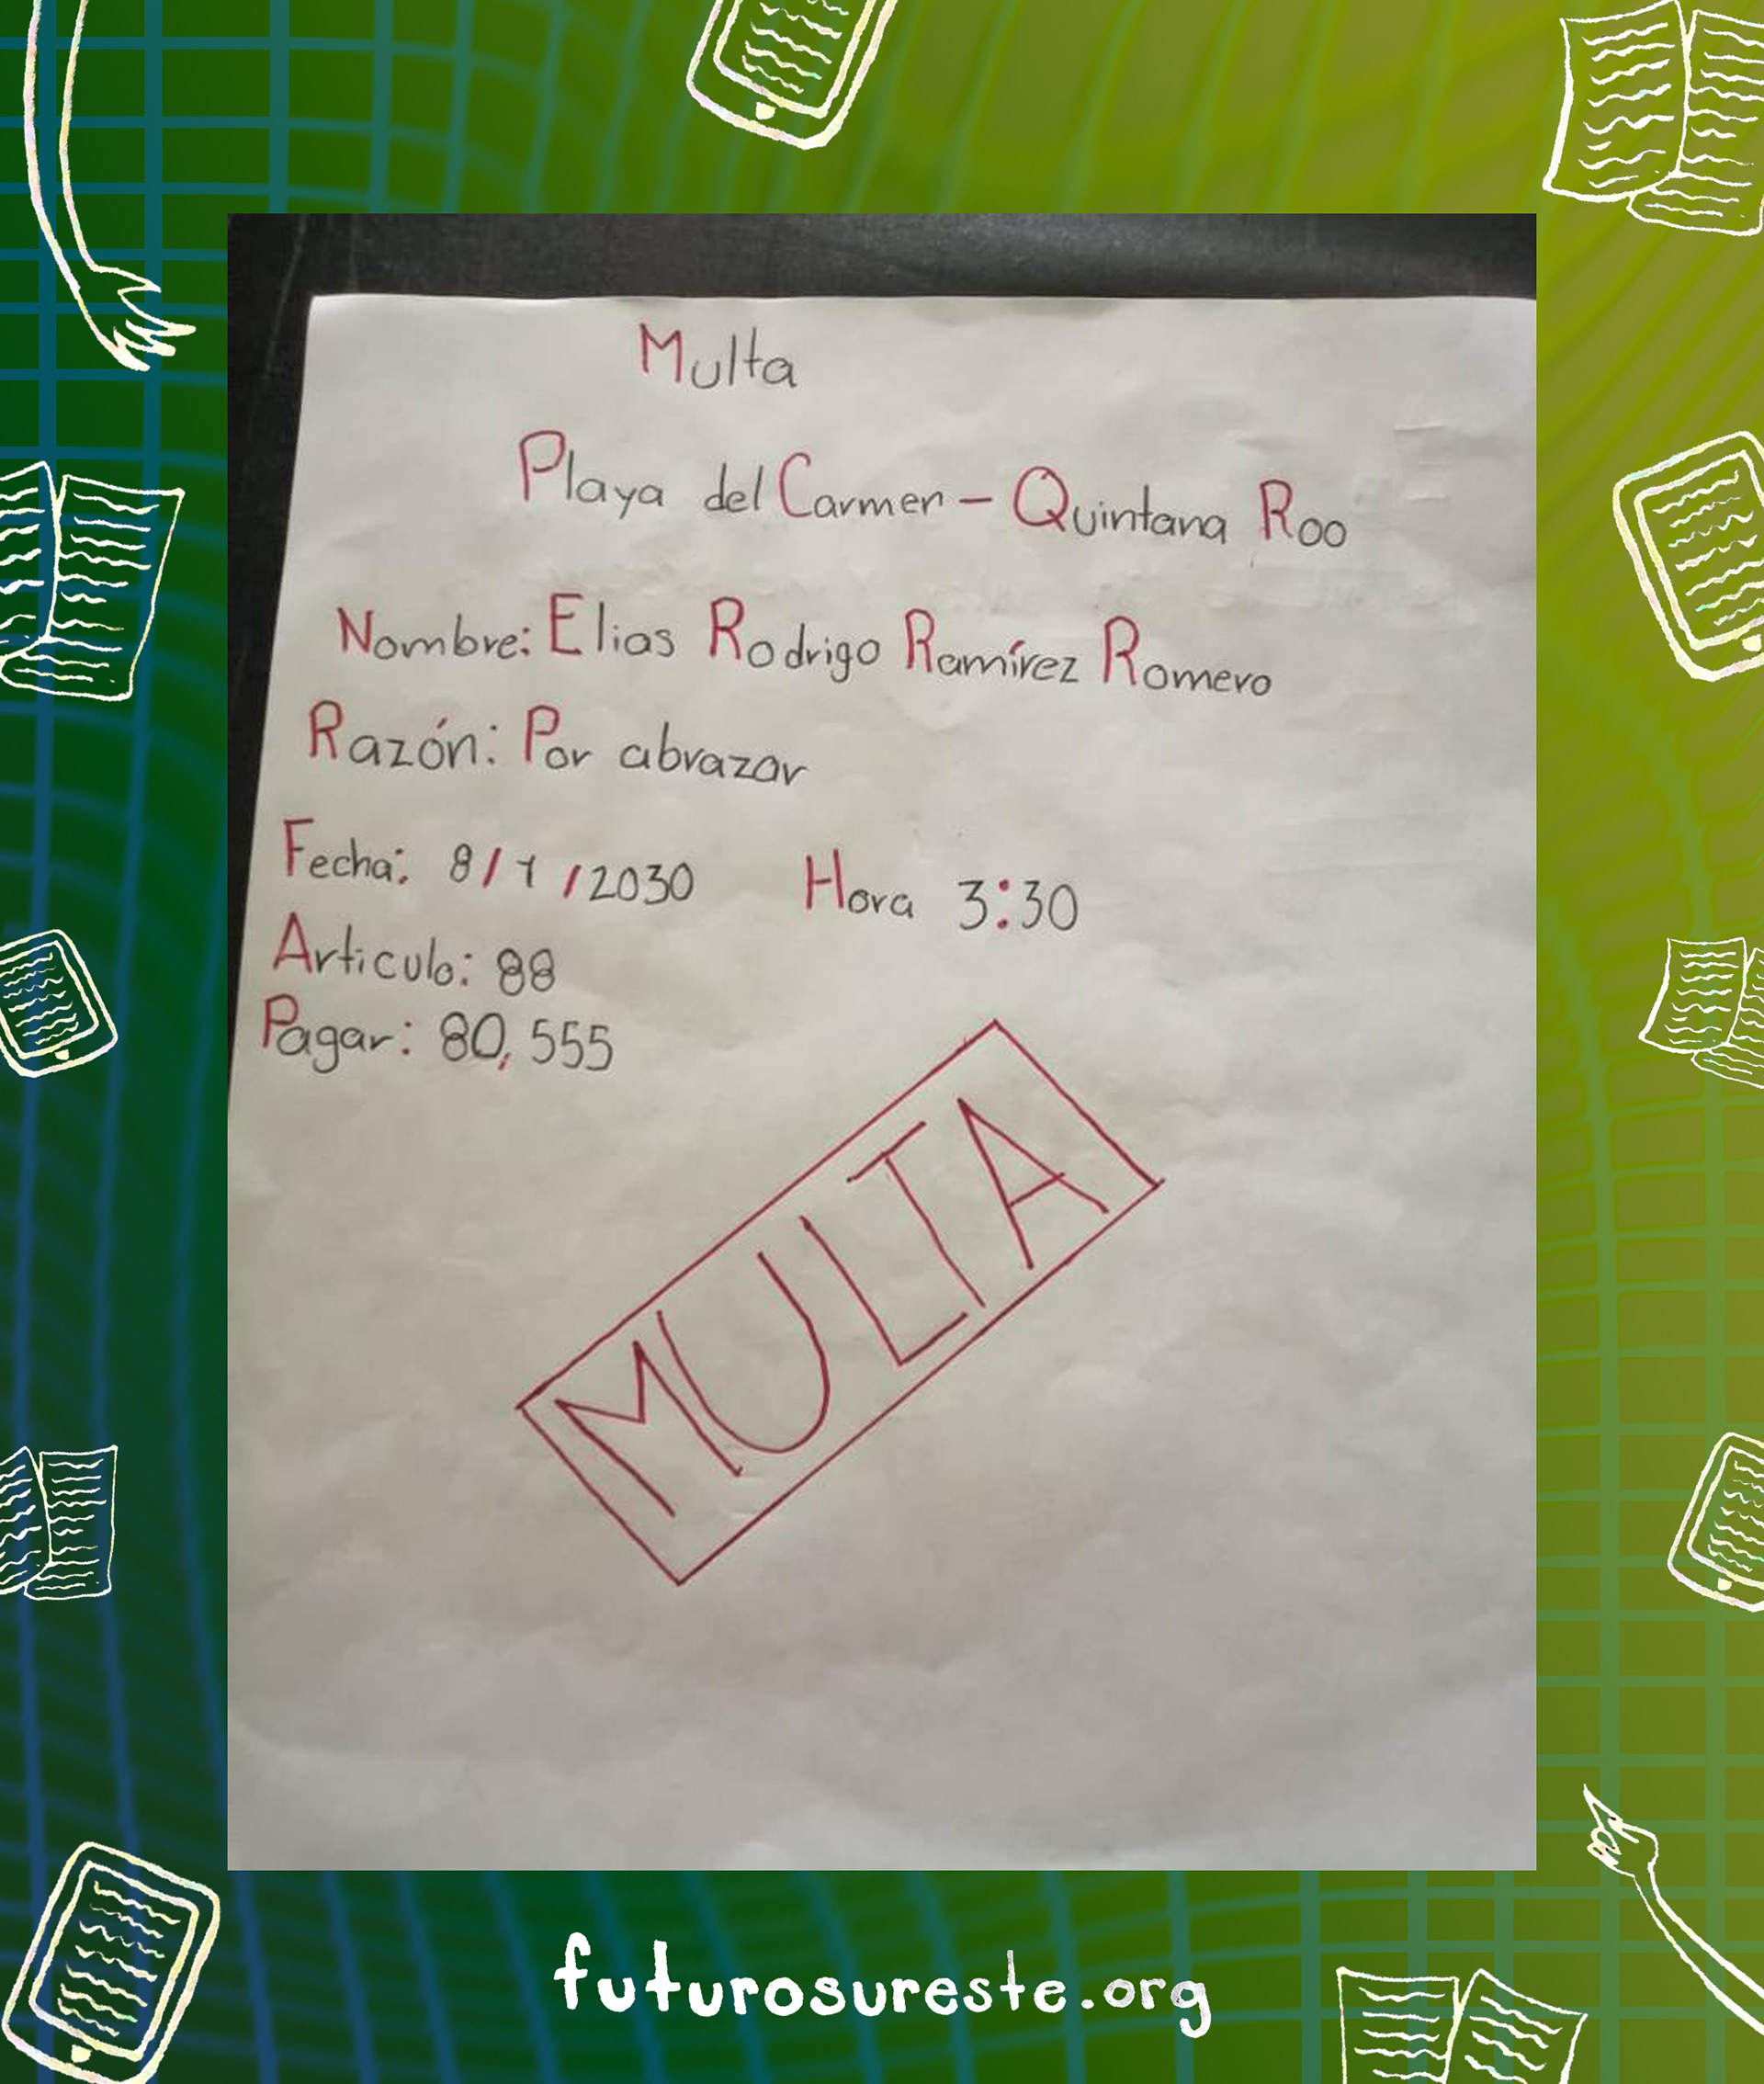 Multa
Playa del Carmen - Quintana Roo
Nombre: Elias Rodrigo Ramírez Romero
Razón: Por abrazar
Fecha: 8/1/2030 Hora 3:30
Articulo: 88
Pagar: 80,555
MULTA
futurosureste.org